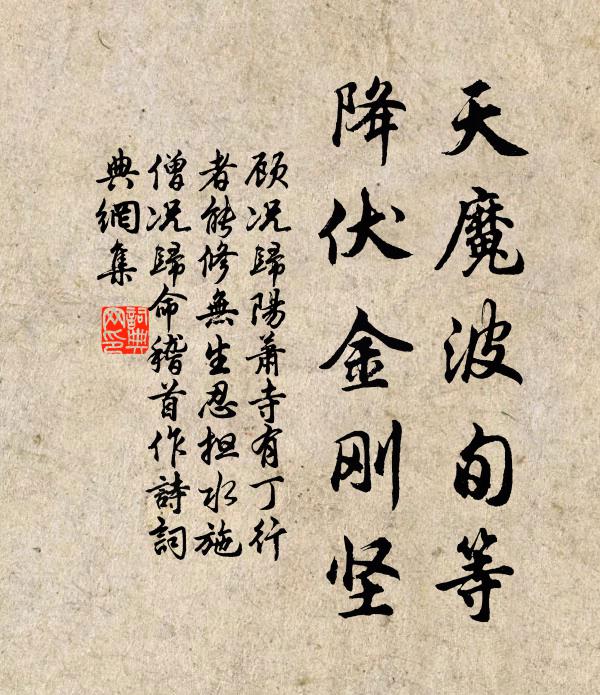 天魔波旬等
降伏金刚坚
顾况歸陽蕭寺有丁行
者能修無生忍担水施
僧况歸命稽首作詩詞
典網集
詞典
网印